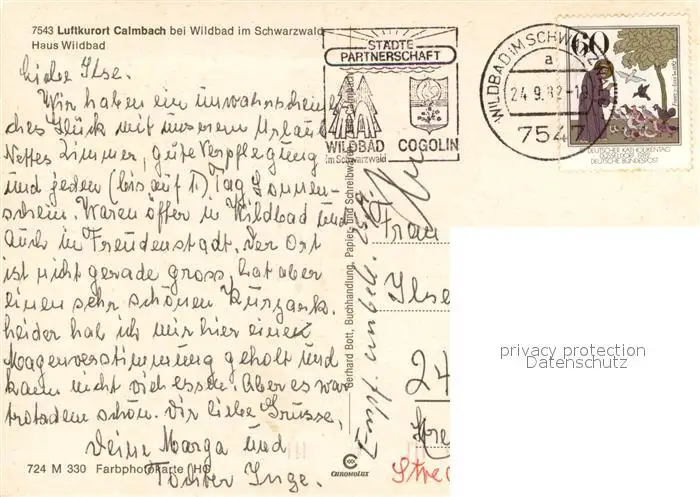 7543 Luftkurort Calmbach bei Wildbad im Schwarzwald
Haus Wildbad
Liebe Ilse.
Wir haben ein unwahrschein-
liches Glück mit unserem Urlaub
Nettes Zimmer, gute Verpflegung
und jeden (bis auf 1) Tag Sonnen-
schein. Waren öfter in Wildbad und
auch in Freudenstadt. Der Ort
ist nicht gerade gross, hat aber
einen sehr schönen Kurpark.
Leider hab ich mir hier einen
Magenverstimmung geholt und
kann nicht viel essen. Aber es war
trotzdem schön. Dir liebe Grüsse,
Deine Marga und
Tochter Inge.
724 M 330 Farbphotokarte (HO)
Gerhard Bott, Buchhandlung, Papier- und Schreibwaren
CHROMOLUX
STÄDTE
PARTNERSCHAFT
WILDBAD
im Schwarzwald
COGOLIN
WILDBAD IM SCHWARZWALD
a
24.9.82-18
7547
60
DEUTSCHER KATHOLIKENTAG
DÜSSELDORF 1982
DEUTSCHE BUNDESPOST
Frau
Ilse
24
privacy protection
Datenschutz